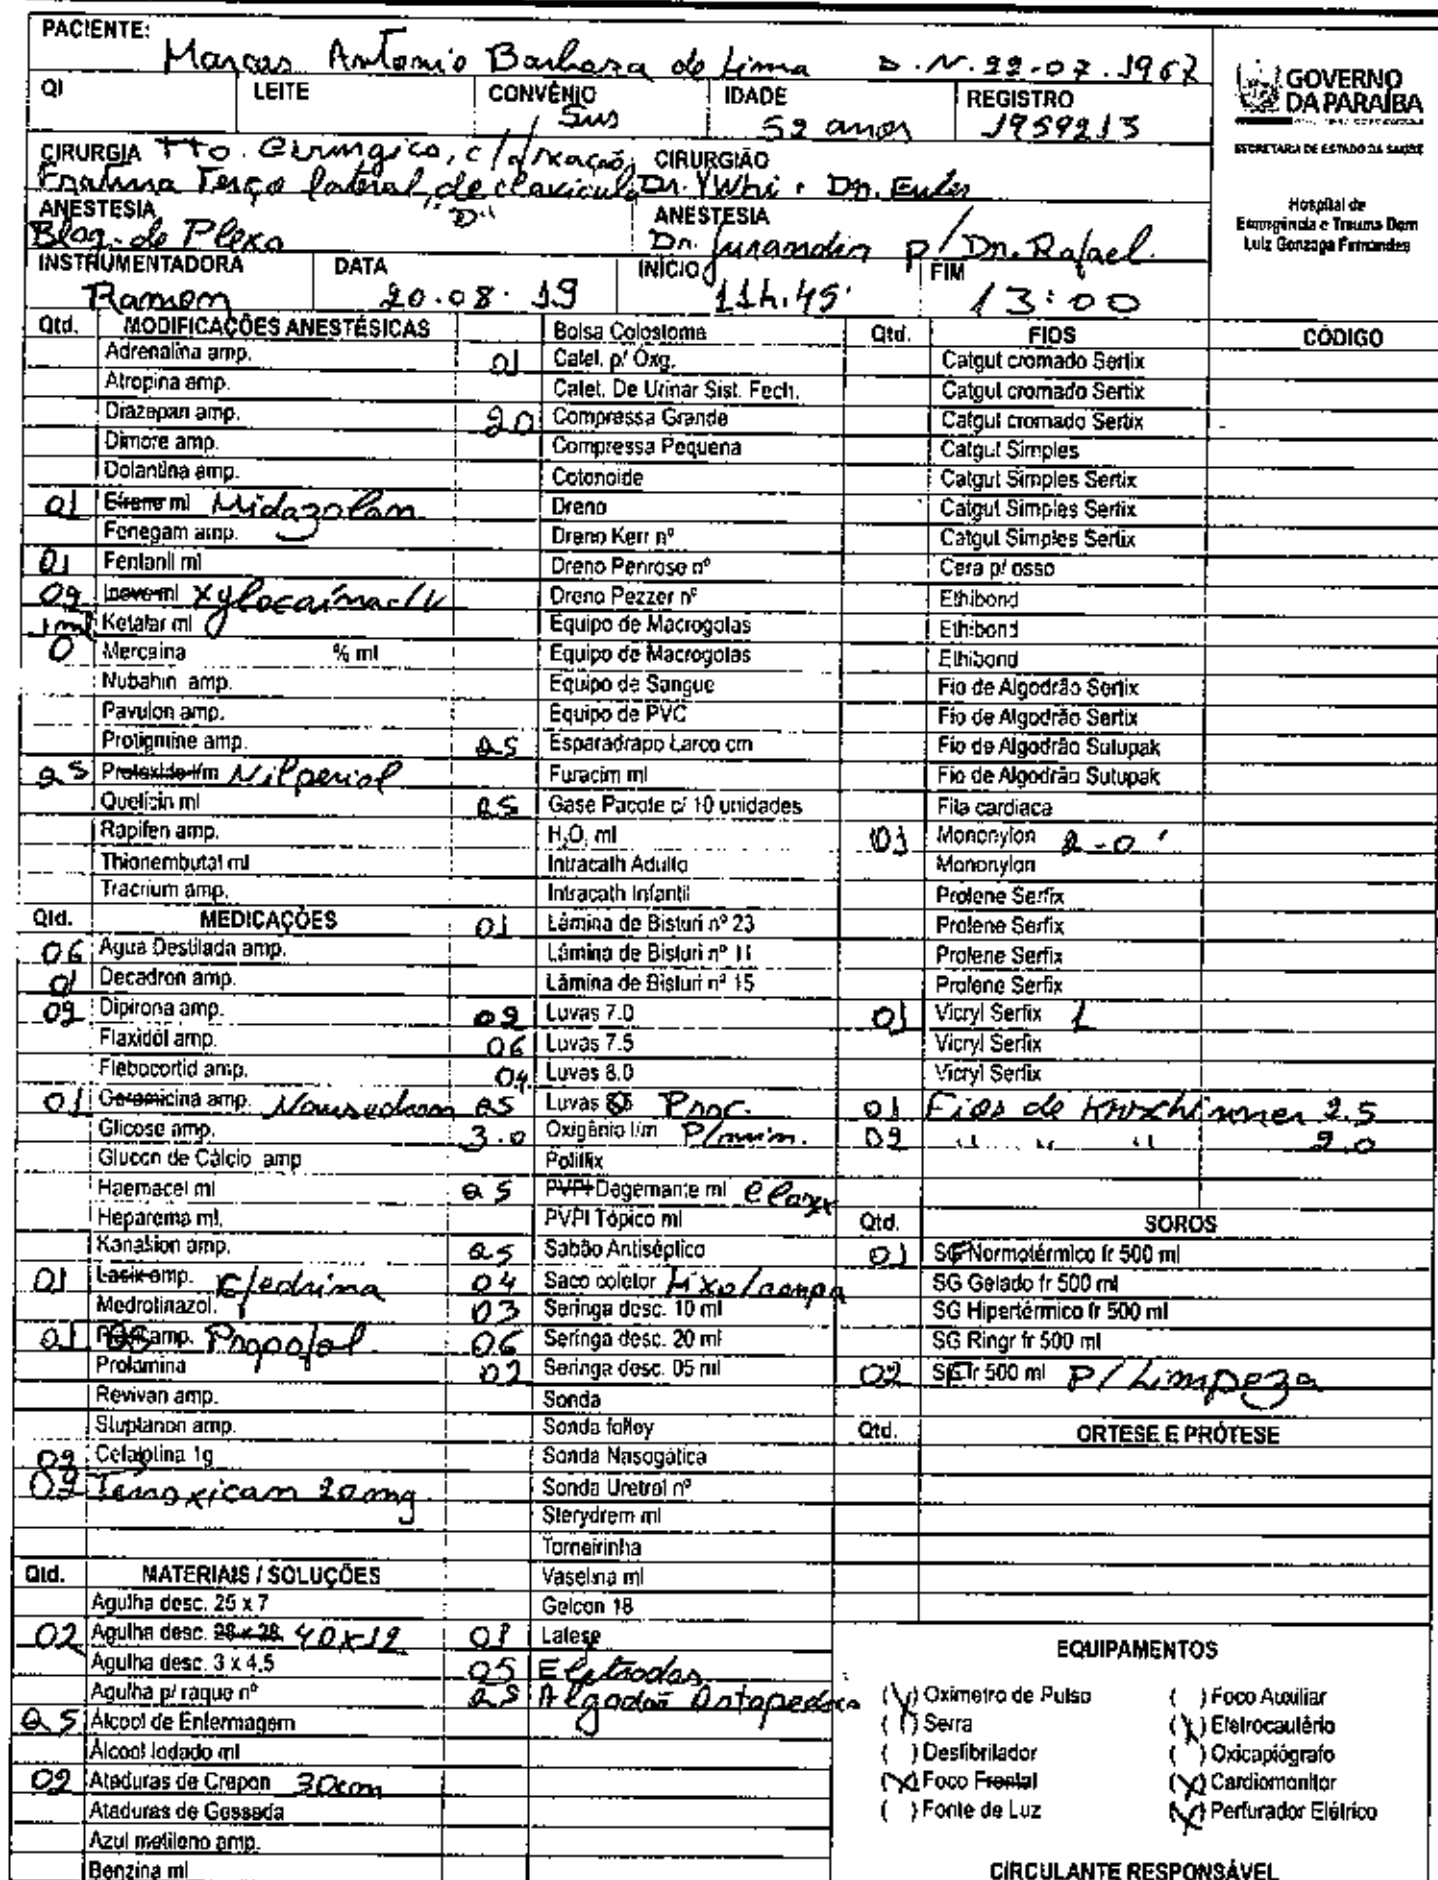 PACIENTE: Marcos Antonio Barbosa de Lima D.N. 22-07.1967
GOVERNO DA PARAÍBA
SECRETARIA DE ESTADO DA SAÚDE
Hospital de Emergência e Trauma Dom Luiz Gonzaga Fernandes
QI LEITE CONVÊNIO Sus IDADE 52 anos REGISTRO 1959213
CIRURGIA Tto. Cirurgico, c/ fixação
Fratura Terço lateral de clavicula "D" CIRURGIÃO Dr. Ywri + Dr. Euler
ANESTESIA Bloq. de Plexo ANESTESIA Dr. Jurandir p/ Dr. Rafael.
INSTRUMENTADORA Ramon DATA 20.08.19 INÍCIO 11h.45' FIM 13:00
Qtd. MODIFICAÇÕES ANESTÉSICAS
Adrenalina amp.
Atropina amp.
Diazepan amp.
Dimore amp.
Dolantina amp.
01 Efrane ml Midazolan
Fenegam amp.
01 Fentanil ml
02 Inova ml Xylocaína c/V
1ml Ketalar ml
0 Mercaina % ml
Nubahin amp.
Pavulon amp.
Protigmine amp.
QS Protoxido l/m Nilperiol
Quelicin ml
Rapifen amp.
Thionembutal ml
Tracrium amp.
Qtd. MEDICAÇÕES
06 Agua Destilada amp.
01 Decadron amp.
02 Dipirona amp.
Flaxidol amp.
Flebocortid amp.
01 Geramicina amp. Nausedron
Glicose amp.
Glucon de Cálcio amp
Haemacel ml
Heparema ml.
Kanakion amp.
01 Lasix amp. Efedrina
Medrotinazol.
01 amp. Propofol
Prolamina
Revivan amp.
Stuptanon amp.
02 Cefalotina 1g
02 Tenoxican 20mg
Qtd. MATERIAIS / SOLUÇÕES
Agulha desc. 25 x 7
02 Agulha desc. 28 x 28 40x12
Agulha desc. 3 x 4,5
Agulha p/ raque nº
QS Álcool de Enfermagem
Álcool Iodado ml
02 Ataduras de Crepon 30cm
Ataduras de Gessada
Azul metileno amp.
Benzina ml
Bolsa Colostoma
01 Catet. p/ Oxg.
Catet. De Urinar Sist. Fech.
20 Compressa Grande
Compressa Pequena
Cotonoide
Dreno
Dreno Kerr nº
Dreno Penrose nº
Dreno Pezzer nº
Equipo de Macrogotas
Equipo de Macrogotas
Equipo de Sangue
Equipo de PVC
QS Esparadrapo Larco cm
Furacim ml
QS Gase Pacote c/ 10 unidades
H₂O₂ ml
Intracath Adulto
Intracath Infantil
01 Lâmina de Bisturi nº 23
Lâmina de Bisturi nº 11
Lâmina de Bisturi nº 15
02 Luvas 7.0
06 Luvas 7.5
04 Luvas 8.0
QS Luvas 8.5 Proc.
3.0 Oxigênio l/m P/min.
Polifix
QS PVPI Degemante ml Clorex
PVPI Tópico ml
QS Sabão Antiséptico
04 Saco coletor Lixo/roupa
03 Seringa desc. 10 ml
06 Seringa desc. 20 ml
02 Seringa desc. 05 ml
Sonda
Sonda folley
Sonda Nasogática
Sonda Uretrol nº
Sterydrem ml
Torneirinha
Vaselina ml
Gelcon 18
01 Latese
05 Eletrodos
QS Algodão Ortopedico
Qtd. FIOS CÓDIGO
Catgut cromado Sertix
Catgut cromado Sertix
Catgut cromado Sertix
Catgut Simples
Catgut Simples Sertix
Catgut Simples Sertix
Catgut Simples Sertix
Cera p/ osso
Ethibond
Ethibond
Ethibond
Fio de Algodrão Sertix
Fio de Algodrão Sertix
Fio de Algodrão Sutupak
Fio de Algodrão Sutupak
Fita cardiaca
01 Mononylon 2-0
Mononylon
Prolene Serfix
Prolene Serfix
Prolene Serfix
Prolene Serfix
01 Vicryl Serfix 1
Vicryl Serfix
Vicryl Serfix
01 Fios de Kirschinner 2.5
02 " " " 2.0
Qtd. SOROS
01 SF Normotérmico fr 500 ml
SG Gelado fr 500 ml
SG Hipertérmico fr 500 ml
SG Ringr fr 500 ml
02 SF fr 500 ml P/ Limpeza
Qtd. ORTESE E PRÓTESE
EQUIPAMENTOS
(X) Oximetro de Pulso ( ) Foco Auxiliar
( ) Serra (X) Eletrocautério
( ) Desfibrilador ( ) Oxicapiógrafo
(X) Foco Frontal (X) Cardiomonitor
( ) Fonte de Luz (X) Perfurador Elétrico
CIRCULANTE RESPONSÁVEL